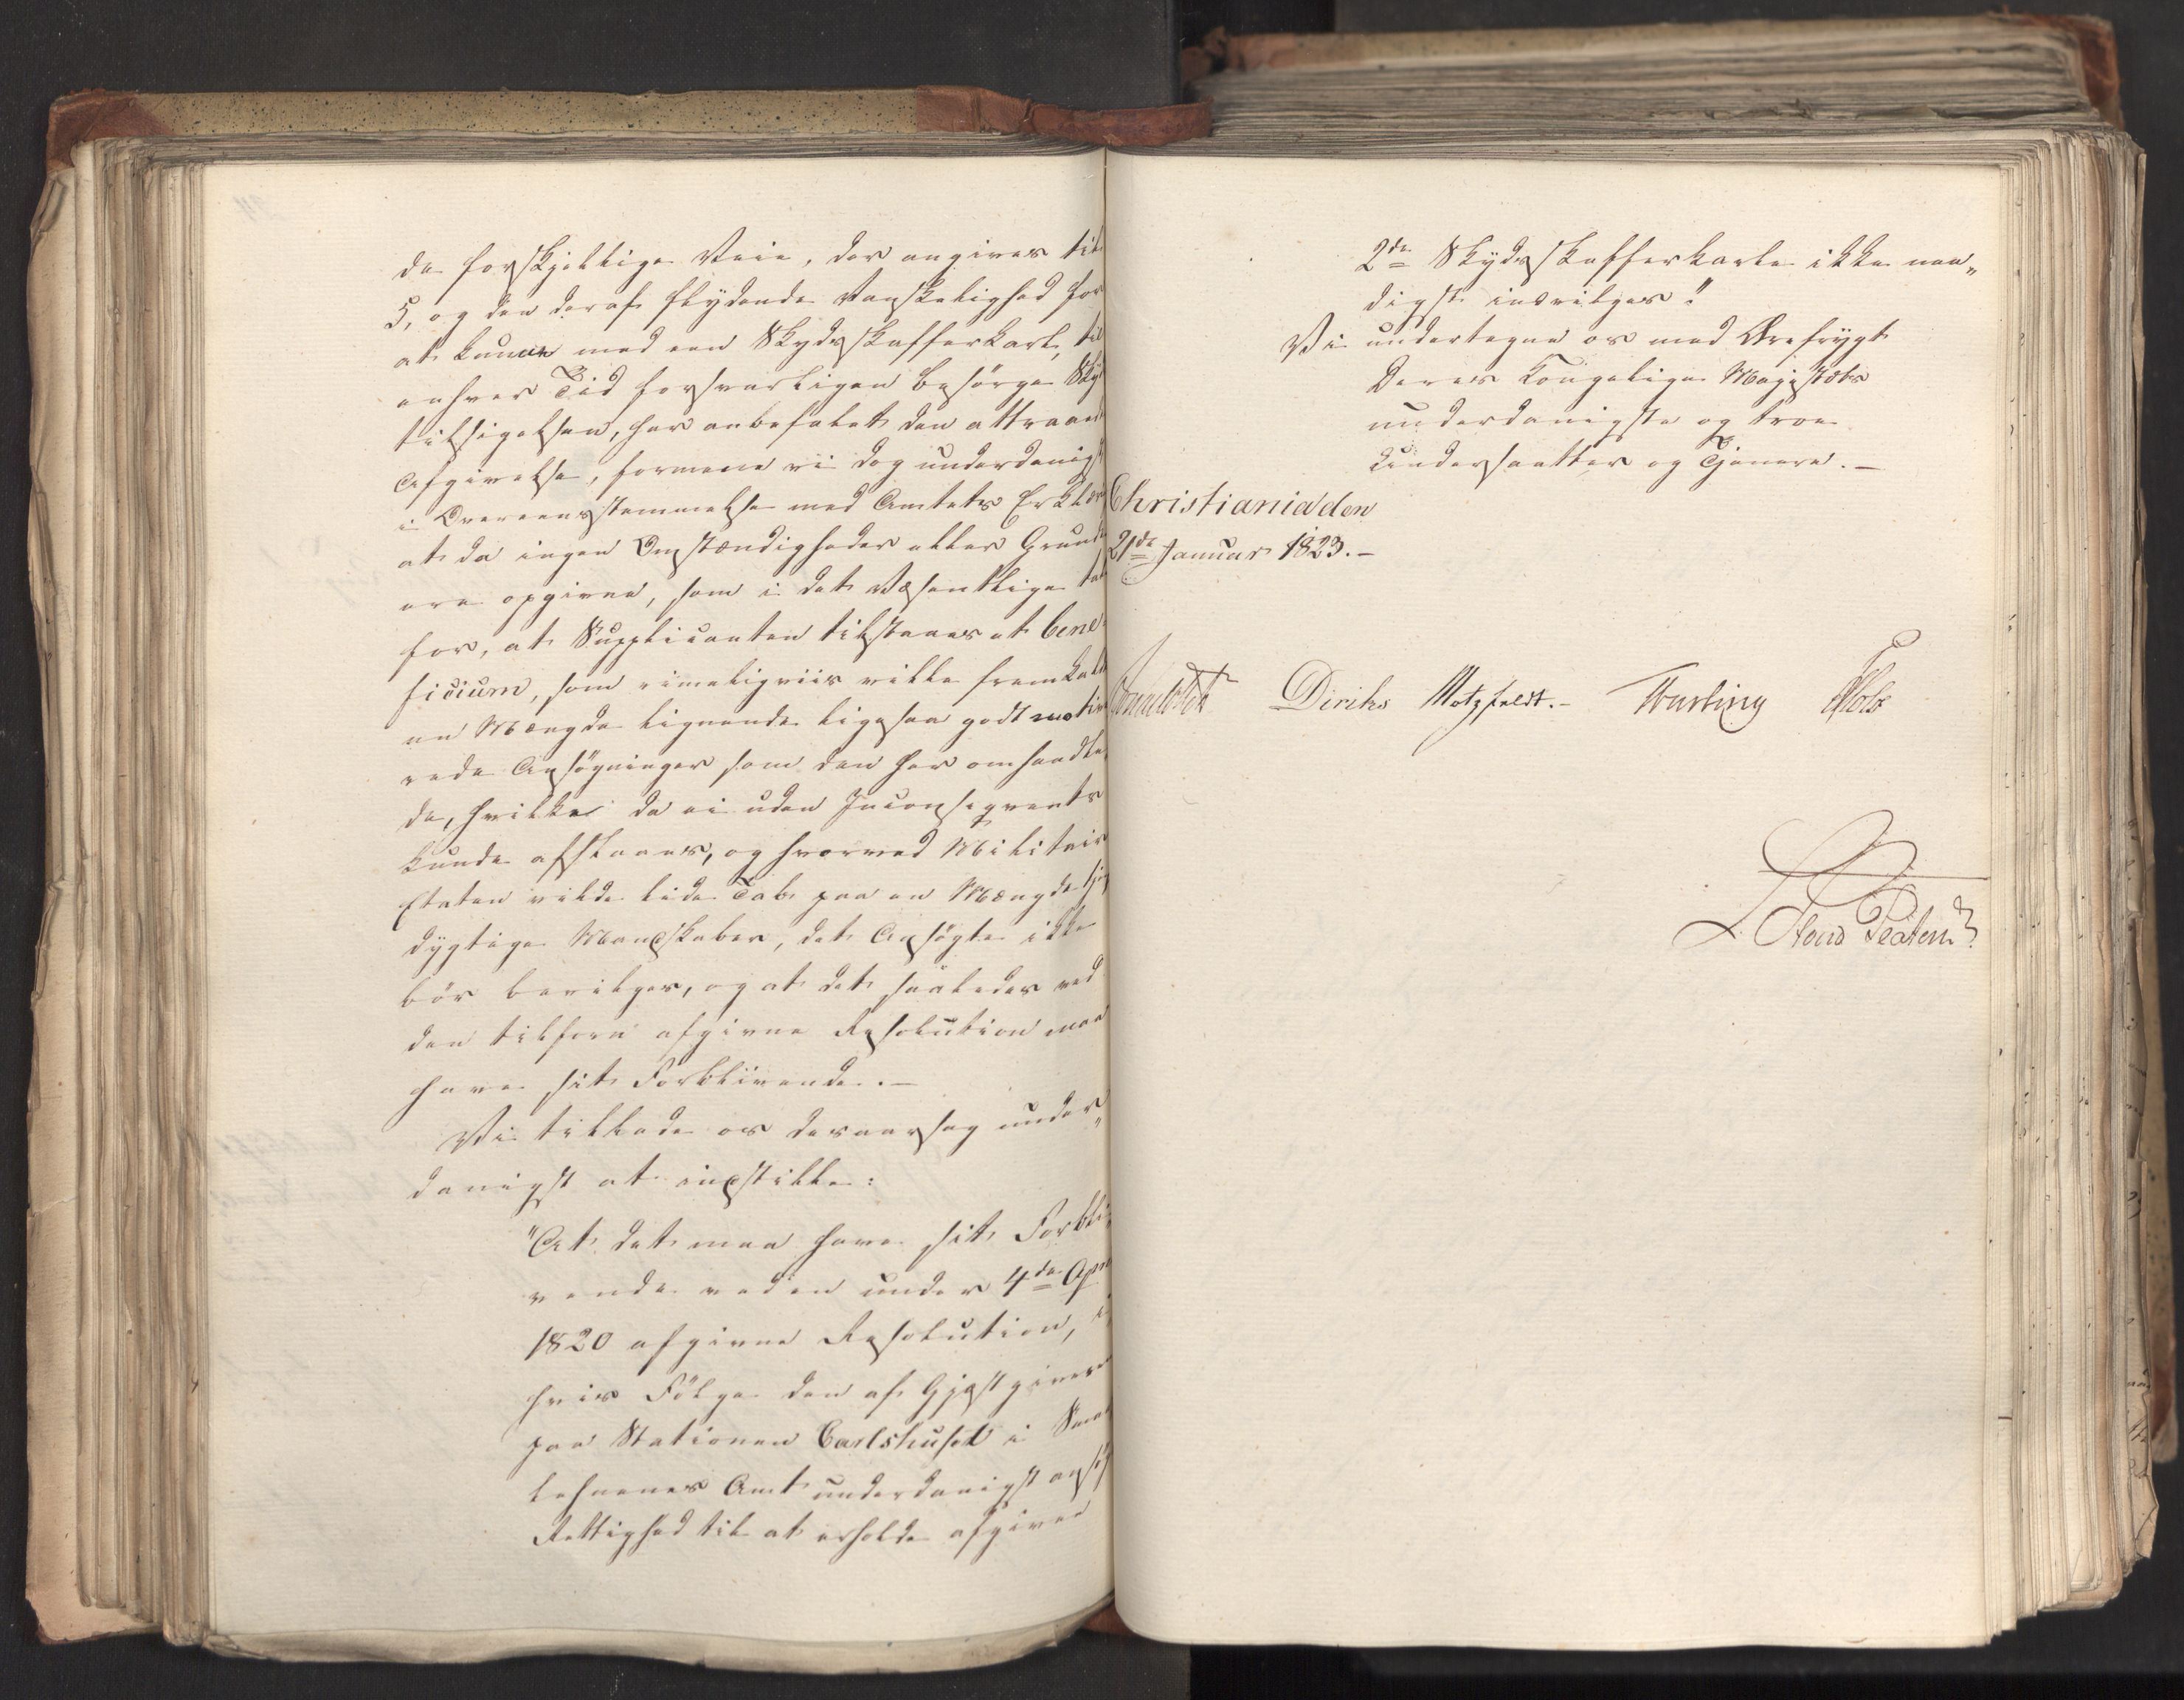 de forskjellige Veie, der angives til
5, og den deraf flydende Vanskelighed for
at kunne med een Skydsskafferkarl, til
enhver Tid forsvarligen besörge Skyds
tilsigelsen, har anbefalet den attraaede
Afgivelse, formene vi dog underdanigst
i Overeensstemmelse med Amtets Erklær
at da ingen Omstændigheder eller Grunde
ere opgivne, som i det Væsentlige tale
for, at Supplicanten tilstaaes et bene-
ficium, som rimeligviis ville fremkalde
en Mængde lignende ligesaa godt motive
rede Ansögninger som den her omhandle
de, hvilke da ei uden Inconseqvents
kunde afslaaes, og hvorved Militair
Etaten vilde lide Tab paa en Mængde tjenst
dygtige Mandskaber, det Ansögte ikke
bör bevilges, og at det saaledes ved
den tilforn afgivne Resolution maa
have sit Forblivende.-
Vi tillade os desaarsag under„
danigst at indstille:
"At det maa have sit Forbli„
vende ved en under 4de April
1820 afgivne Resolution, i
hvis Fölge den af Gjæstgiveren
paa Stationen Carlshuset i Smaa
lehnenes Amt underdanigst ansögte
Rettighed til at erholde afgiven
2de Skydsskafferkarle ikke naa„
digst indvilges."
Vi undertegne os med Ærefrygt
Deres Kongelige Majestæts
underdanigste og troe
Undersaatter og Tjenere.-
Christiania den
21de Januar 1823.-
Diriks Motzfeldt.-